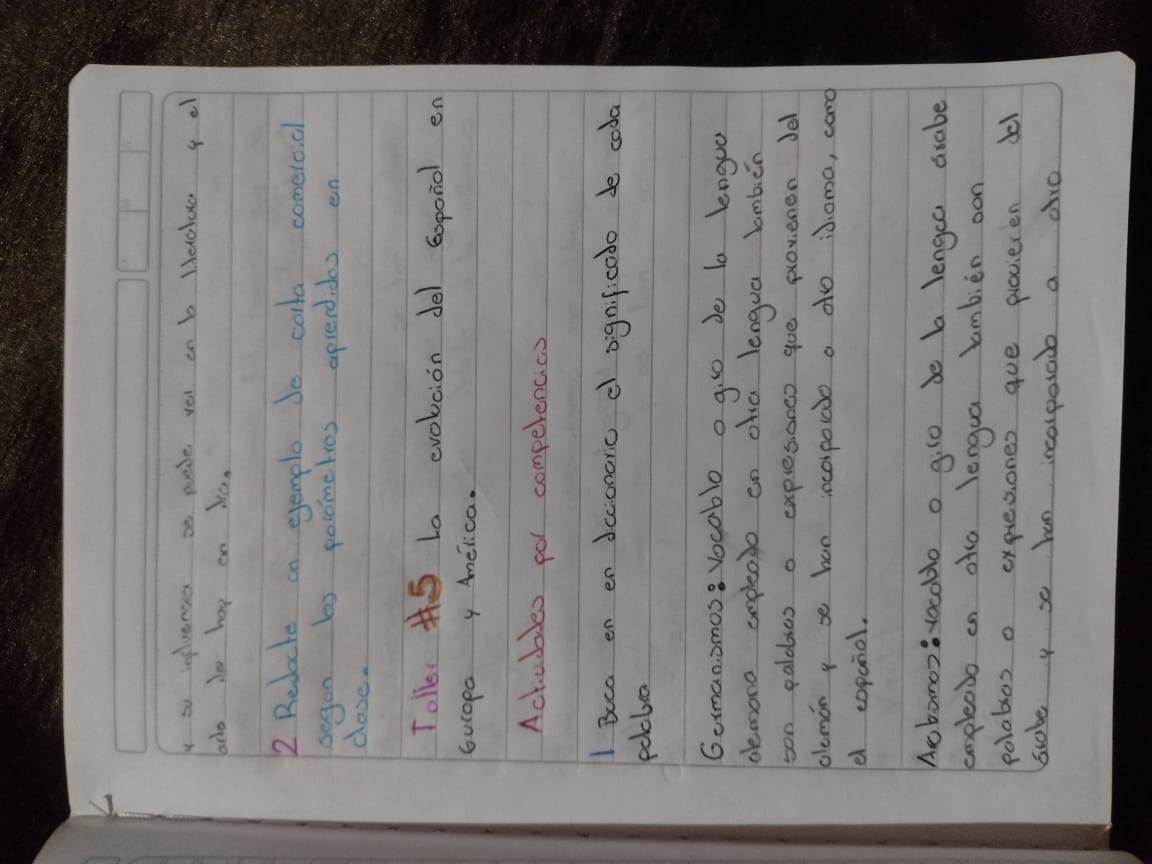 y su influencia se puede ver en la literatura y el
arte de hoy en día.
2 Redacte un ejemplo de carta comercial
segun los parámetros aprendidos en
clase.
Taller #5 La evolución del Español en
Europa y América.
Actividades por competencias
1 Busca en en diccionario el significado de cada
palabra
Germanismos: Vocablo o giro de la lengua
alemana empleado en otra lengua también
son palabras o expresiones que provienen del
alemán y se han incorporado a otro idioma, como
el español.
Arabismos: vocablo o giro de la lengua árabe
empleado en otra lengua también son
palabras o expresiones que provieren del
árabe y se han incorporado a otro